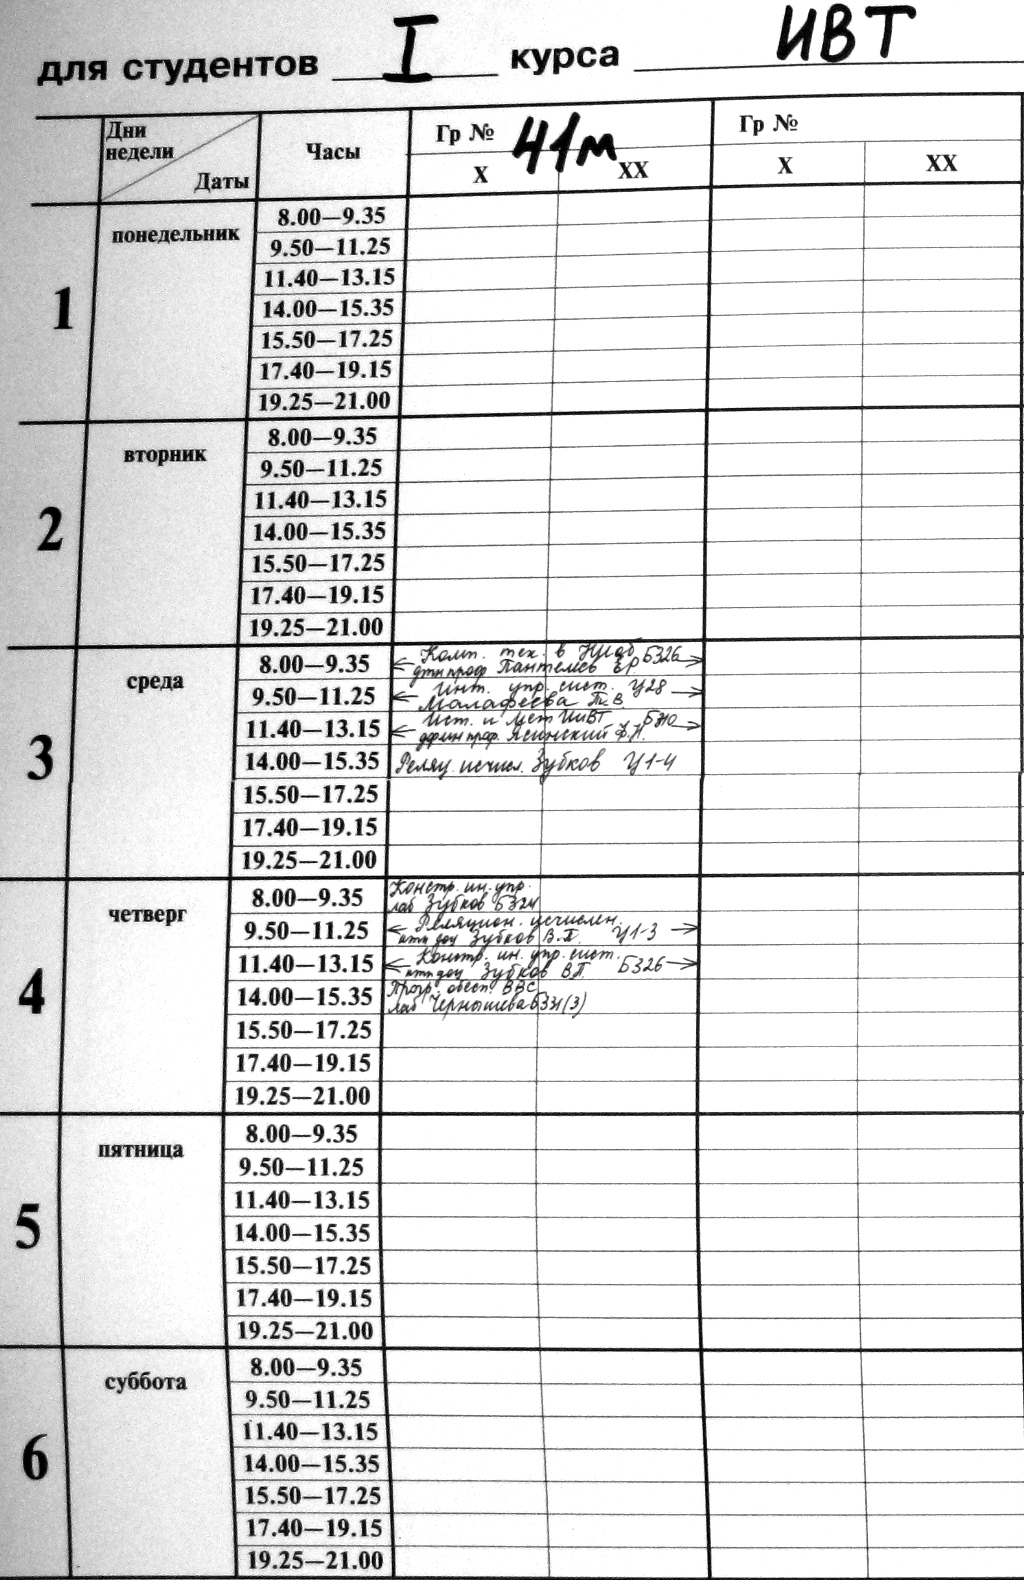 для студентов I курса ИВТ
Дни недели Даты Часы Гр № 41м Гр №
X XX X XX
1 понедельник 8.00—9.35
9.50—11.25
11.40—13.15
14.00—15.35
15.50—17.25
17.40—19.15
19.25—21.00
2 вторник 8.00—9.35
9.50—11.25
11.40—13.15
14.00—15.35
15.50—17.25
17.40—19.15
19.25—21.00
3 среда 8.00—9.35 Комп. тех. в Б326
проф Пантелеев ЕР
9.50—11.25 Инт. упр. сист. Ц28
Малафеева
11.40—13.15 Ист. и мет ИиВТ Б310
проф. Ясинский Ф.Н.
14.00—15.35 Реляц. исчисл. Зубков Ц1-4
15.50—17.25
17.40—19.15
19.25—21.00
4 четверг 8.00—9.35 Констр. ин. упр.
лаб Зубков Б324
9.50—11.25 Реляцион. исчислен.
ктн доц Зубков В.П. Ц1-3
11.40—13.15 Констр. ин. упр. сист.
ктн доц Зубков ВП. Б326
14.00—15.35 Прогр. обесп. ВВС
лаб Чернышева Б331(3)
15.50—17.25
17.40—19.15
19.25—21.00
5 пятница 8.00—9.35
9.50—11.25
11.40—13.15
14.00—15.35
15.50—17.25
17.40—19.15
19.25—21.00
6 суббота 8.00—9.35
9.50—11.25
11.40—13.15
14.00—15.35
15.50—17.25
17.40—19.15
19.25—21.00